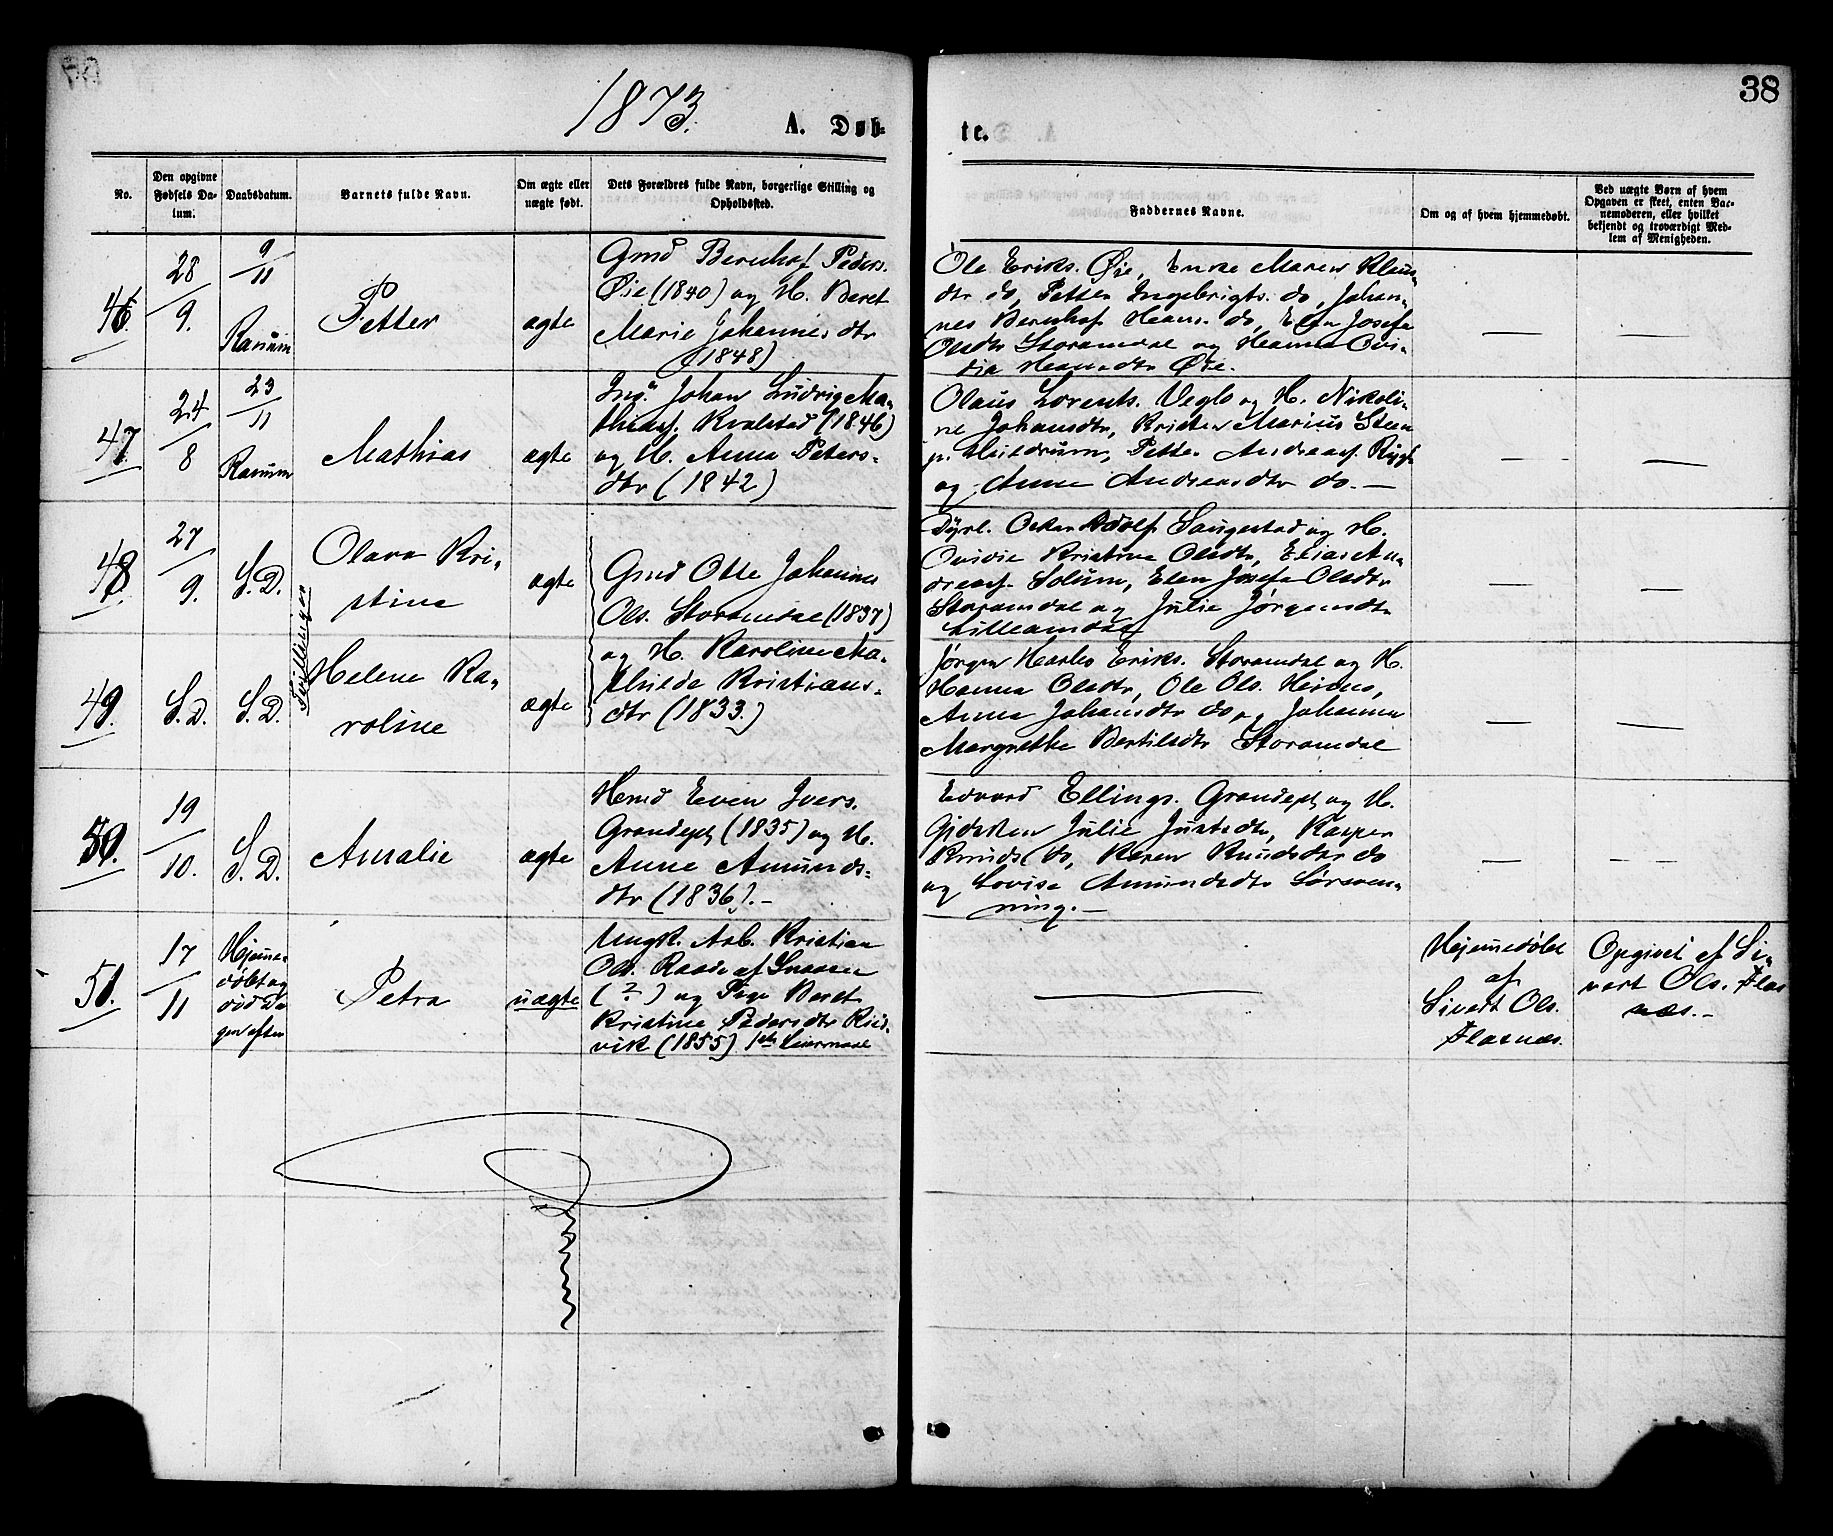 38
1873.
A. Døb-
te.
No.
Den opgivne Fødsels Da-
tum.
Daabsdatum.
Barnets fulde Navn.
Om ægte eller
uægte født.
Dets Forældres fulde Navn, borgerlige Stilling og
Opholdssted.
Faddernes Navne.
Om og af hvem hjemmedøbt.
Ved uægte Børn af hvem
Opgaven er skeet, enten Bar-
nemoderen, eller hvilket
bekjendt og troværdigt Med-
lem af Menigheden.
46.
28/9.
9/11
Ranum
Petter
ægte
Gmd Bernhof Peders.
Øie (1840) og H. Beret
Marie Johannesdtr
(1848)
Ole Eriks. Øie, Enke Maren Klaus-
dtr do, Petter Ingebrigts. do, Johan-
nes Bernhof Hans. do, Elen Josefa
Olsdtr Storamdal og Hanna Ovi-
dia Hansdtr Øie.
—
—
47.
24/8
23/11
Ranum
Mathias
ægte
Johan Ludvig Ma-
thiasf. Kvalstad (1846)
og H. Anna Peters-
dtr (1842)
Olaus Lorents. Veglo og H. Nikoli-
ne Johansdtr, Kristen Marius Steen
p. Huildrum, Petter Andreasf. Rygh
og Anne Andreasdtr do. —
—
—
48.
27/9.
S.D.
Tvillinger
Olava Kri-
stine
ægte
Gmd Otte Johannes
Ols. Storamdal (1837)
Dyrl. Oskar Adolf Saugestad og H.
Ovidie Kristine Olsdtr, Elias An-
dreasf. Solum, Elen Josefa Olsdtr
Storamdal og Julie Jørgensdtr
Lilleamdal
—
—
49.
S.D.
S.D.
Helene Ka-
roline
ægte
og H. Karoline Ma-
thilde Kristians-
dtr (1833.)
Jørgen Eriks. Storamdal og H.
Hanna Olsdtr, Ole Ols.
Anna Johansdtr do og Johanna
Margrethe Bertilsdtr Storamdal
—
—
50.
19/10.
S.D.
Amalie
ægte
Hmd Even Ivers.
Grandept (1835) og H.
Anne Amunds-
dtr (1836). —
Edvard Ellings. Grandept og H.
Gjertsten Julie Justsdtr, Kasper
Knuds. do, Karen Knudsdtr do
og Lovise Amundsdtr Sørsven-
ning. —
—
—
51.
17/11
Hjemme-
døbt og
død Da-
gen efter
Petra
uægte
Ungk. Arb. Kristian
Ols. af Snaasen
(?) og Pige Beret
Kristine Pedersdtr
vik (1855) 1ste Leiermaal
—
Hjemmedøbt
af
Sivert Ols.
Flasnæs.
Opgivet af Si-
vert Ols. Flas-
næs. —